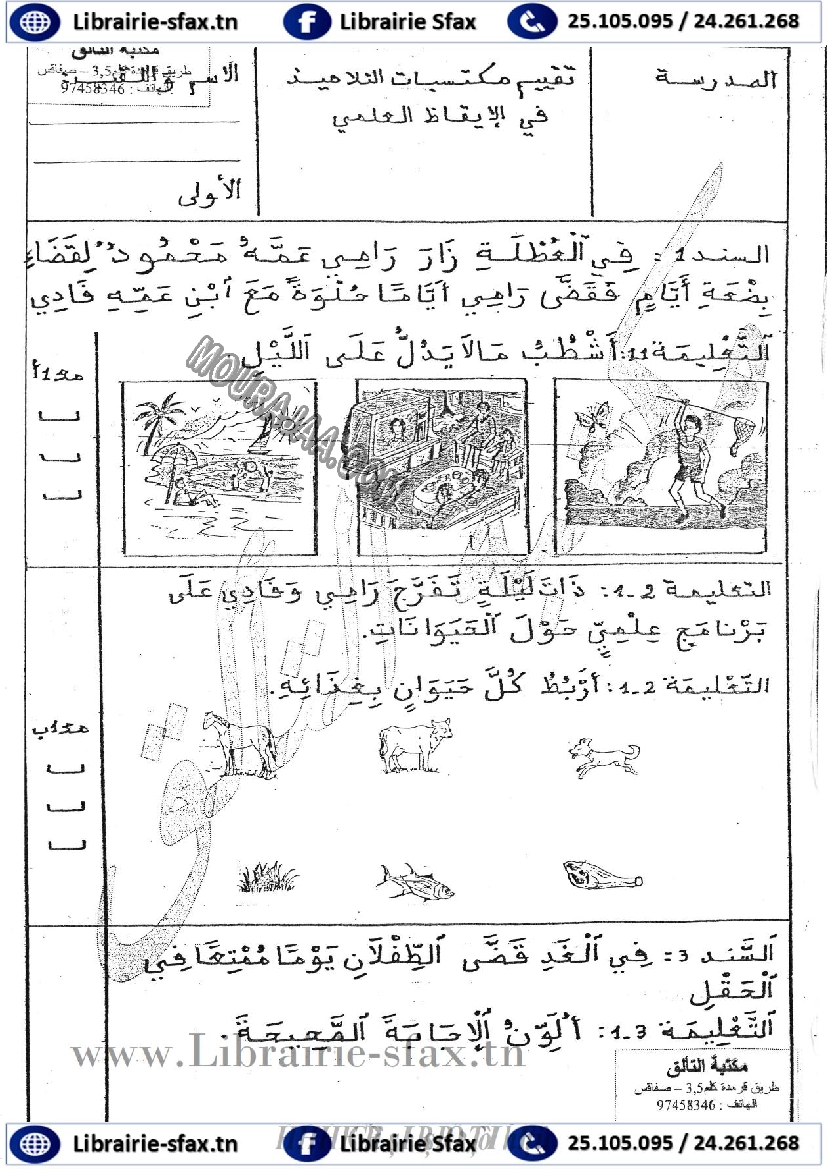 Librairie-sfax.tn Librairie Sfax 25.105.095 / 24.261.268
المدرسة
تقييم مكتسبات التلاميذ
في الإيقاظ العلمي
مكتبة التألق
طريق قرمدة كلم3,5 – صفاقس
الهاتف : 97458346
الاسم و اللقب
الأولى
السند 1: فِي الْعُطْلَةِ زَارَ رَامِي عَمَّهُ مَحْمُود لِقَضَاءِ
بِضْعَةِ أَيَّامٍ فَقَضَّى رَامِي أَيَّامًا حُلْوَةً مَعَ ابْنِ عَمِّهِ فَادِي
التَّعْلِيمَة 1.1: أَشْطُبُ مَا لَا يَدُلُّ عَلَى اللَّيْلِ.
مع1أ
MOURAJAA.COM
التعليمة 2-1: ذَاتَ لَيْلَةٍ تَفَرَّجَ رَامِي وَفَادِي عَلَى
بَرْنَامَجٍ عِلْمِيٍّ حَوْلَ الْحَيَوَانَاتِ.
التَّعْلِيمَة 2-1: أَرْبُطُ كُلَّ حَيَوَانٍ بِغِذَائِهِ.
مع1ب
السَّند 3: فِي الْغَدِ قَضَّى الطِّفْلَانِ يَوْمًا مُمْتِعًا فِي
الْحَقْلِ
التَّعْلِيمَة 3-1: أُلَوِّنُ الْإِجَابَةَ الصَّحِيحَةَ.
www.Librairie-sfax.tn
مكتبة التألق
طريق قرمدة كلم3,5 – صفاقس
الهاتف : 97458346
Librairie-sfax.tn Librairie Sfax 25.105.095 / 24.261.268